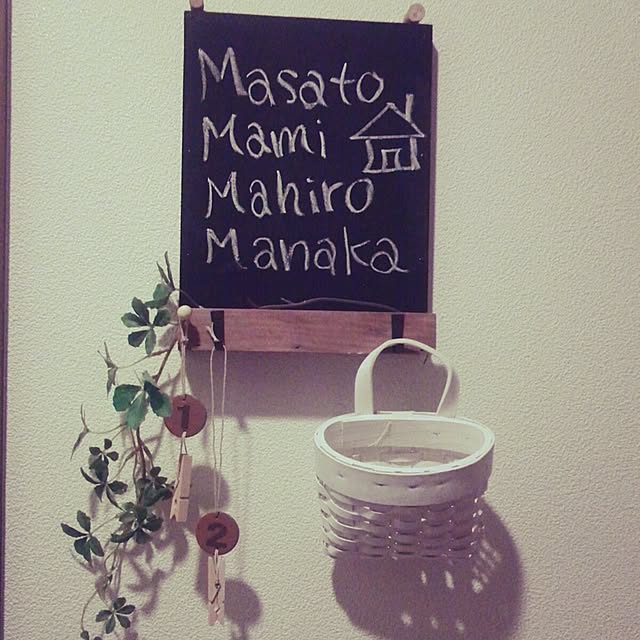 Masato
Mami
Mahiro
Manaka
1
2